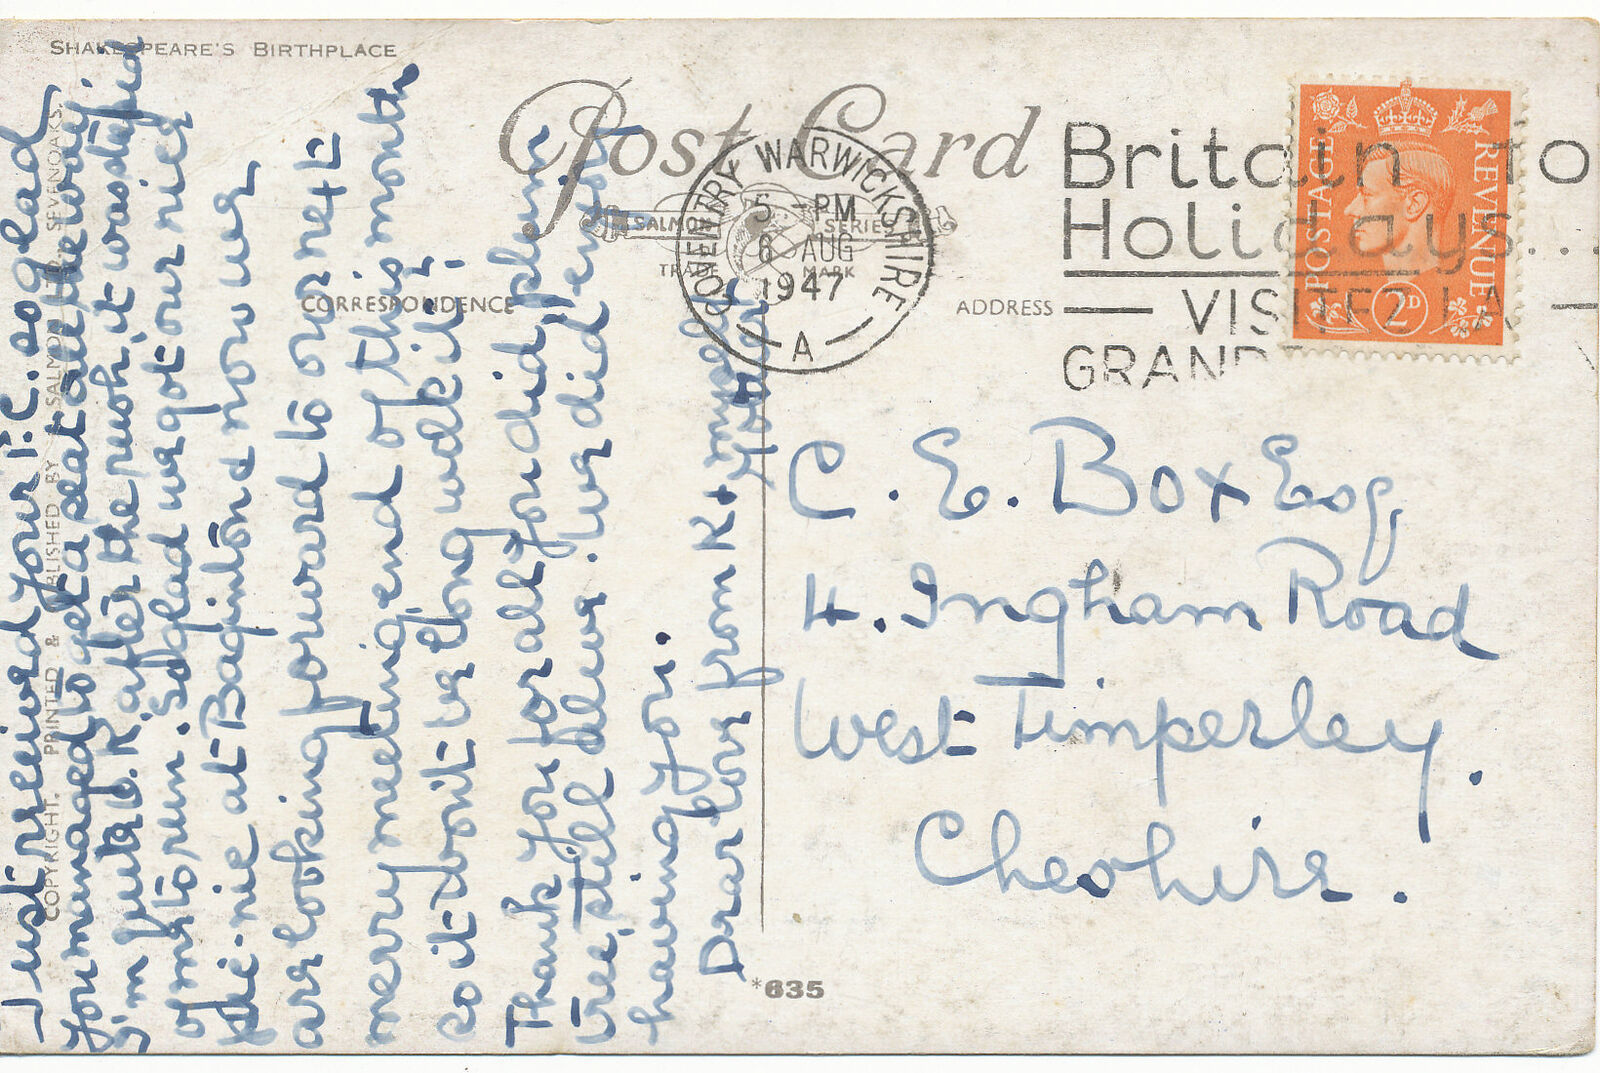 SHAKESPEARE'S BIRTHPLACE
Post Card
SALMON SERIES
TRADE MARK
CORRESPONDENCE
ADDRESS
COVENTRY WARWICKSHIRE
5 - PM
8 AUG
1947
A
Britain for
Holidays...
VISITEZ LA
GRANDE
POSTAGE
REVENUE
2D
Just received your P.C. so glad
you managed to get a seat all the way.
I'm quite O.K. after the rush, it was stupid
of me to run. So glad we got our nice
pic-nic at Baginton & now we
are looking forward to our next
merry meeting end of this month
so it won't be long will it?
Thank you for all you did plum
tree, still alive. We did enjoy
having you.
Dear love from K & myself
Mother
C. E. Box Esq,
4. Ingham Road
West Timperley.
Cheshire.
COPYRIGHT. PRINTED & PUBLISHED BY J. SALMON LTD. SEVENOAKS.
*635